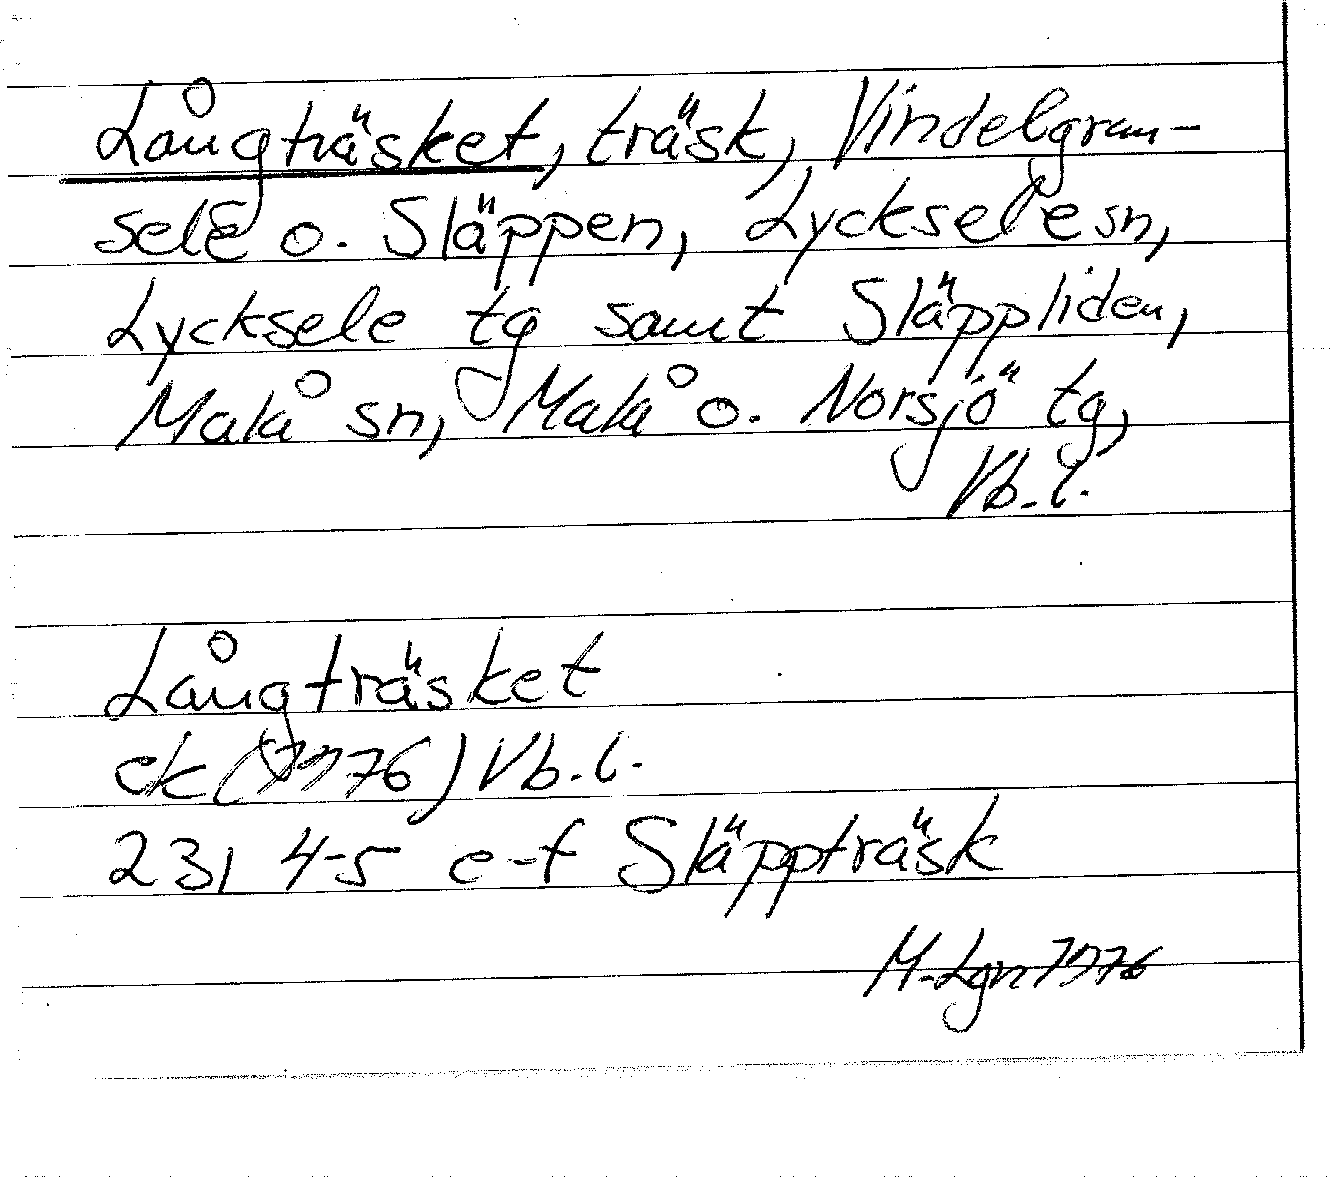 Långträsket, träsk, Vindelgran-
sele o. Släppen, Lycksele sn,
Lycksele tg samt Släppliden,
Malå sn, Malå o. Norsjö tg,
Vb. l.
Långträsket
ek (1976) Vb. l.
23I 4-5 e-f Släppträsk
M. Lgn 1976